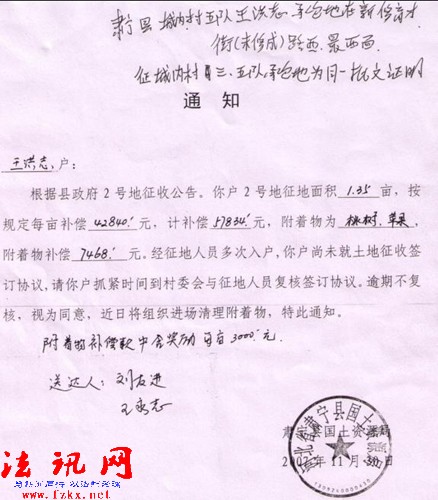 肃宁县城内村五队王洪志承包地在新修育才
街(未修成)路西最西面
征城内村三、五队承包地为同一批文证明
通知
王洪志户:
根据县政府2号地征收公告。你户2号征地面积1.35亩,按
规定每亩补偿42840元,计补偿57834元,附着物为桃树、苹果,
附着物补偿7468元。经征地人员多次入户,你户尚未就土地征收签
订协议,请你户抓紧时间到村委会与征地人员复核签订协议。逾期不复
核,视为同意,近日将组织进场清理附着物,特此通知。
附着物补偿款中含奖励每亩3000元.
送达人:刘友进
王秀志
肃宁县国土资源局
年11月30日
河北省肃宁县国土资源局
法讯网
www.fzkx.net